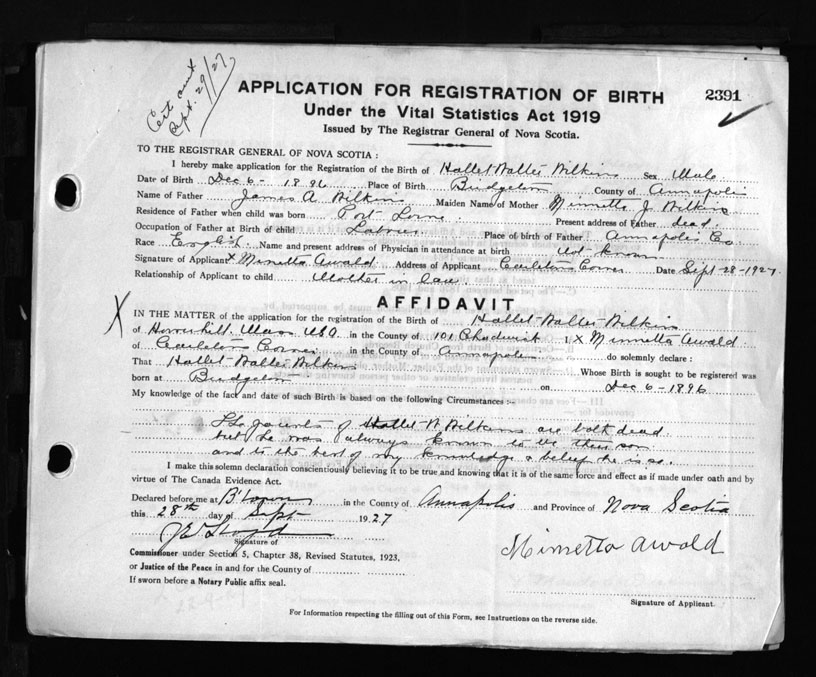 Cert sent
Sept. 29/27
APPLICATION FOR REGISTRATION OF BIRTH
2391
Under the Vital Statistics Act 1919
Issued by The Registrar General of Nova Scotia.
TO THE REGISTRAR GENERAL OF NOVA SCOTIA :
I hereby make application for the Registration of the Birth of Hallet Walter Wilkins Sex Male
Date of Birth Dec 6 - 1896 Place of Birth Bridgeton County of Annapolis
Name of Father James A. Wilkins Maiden Name of Mother Minnetta J. Wilkins
Residence of Father when child was born Port Lorne Present address of Father dead
Occupation of Father at Birth of child Labrer Place of birth of Father Annapolis Co
Race English Name and present address of Physician in attendance at birth not known
Signature of Applicant X Minnetta Awald Address of Applicant Carletons Corner Date Sept-28-1927
Relationship of Applicant to child Mother in law
AFFIDAVIT
X
IN THE MATTER of the application for the registration of the Birth of Hallet Walter Wilkins
of Haverhill, Mass USA in the County of 101 Chadwick I X Minnetta Awald
of Carletons Corner in the County of Annapolis do solemnly declare :
That Hallet Walter Wilkins Whose Birth is sought to be registered was
born at Bridgeton on Dec 6 - 1896
My knowledge of the fact and date of such Birth is based on the following Circumstances :-
parents of Hallet W Wilkins are both dead
but he was always known to be their son
and to the best of my knowledge & belief he is so.
I make this solemn declaration conscientiously believing it to be true and knowing that it is of the same force and effect as if made under oath and by
virtue of The Canada Evidence Act.
Declared before me at B'town in the County of Annapolis and Province of Nova Scotia
this 28th day of Sept 1927
Signature of
Minnetta Awald
Commissioner under Section 5, Chapter 38, Revised Statutes, 1923,
or Justice of the Peace in and for the County of
If sworn before a Notary Public affix seal.
Signature of Applicant.
For Information respecting the filling out of this Form, see Instructions on the reverse side.